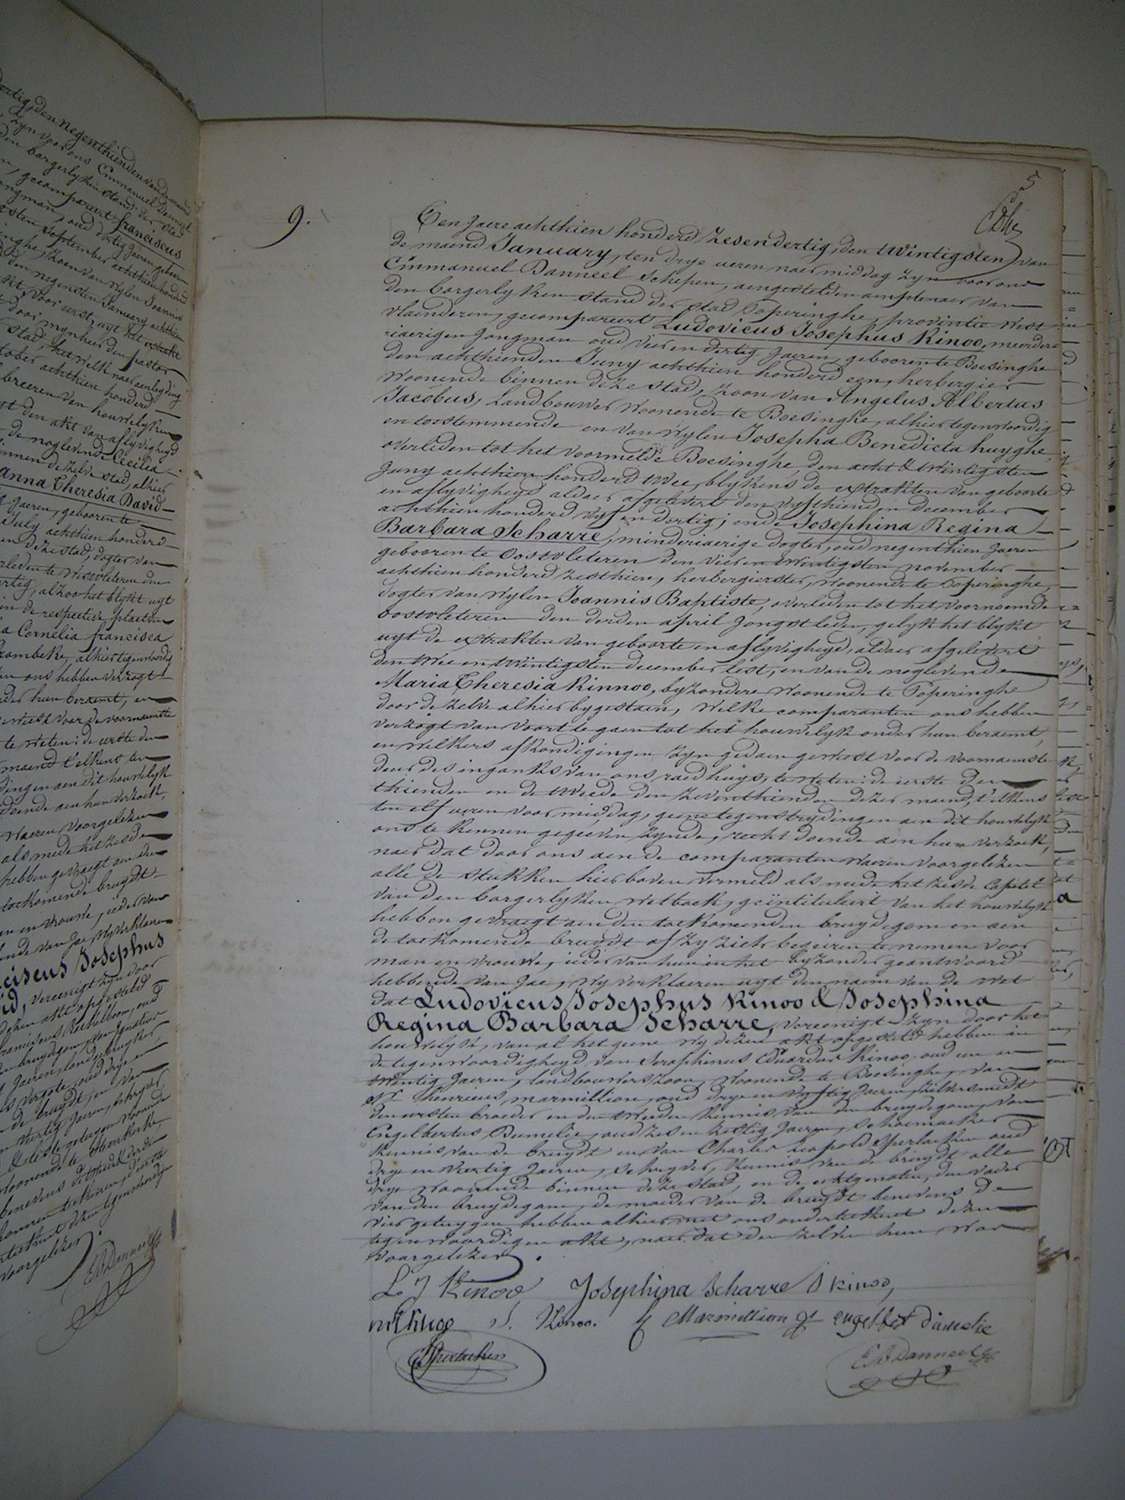 5
9.
Den Jaere achthien honderd zesendertig, den twintigsten van
de maend January, ten drye ueren naer middag zyn voor ons
Emmanuel Danneel Schepen, aengestelden amptenaer van
den borgerlyken stand der stad Poperinghe, provintie west
vlaenderen, gecompareert Ludovicus Josephus Kinoo, meerder
iaerigen Jongman oud vier en dertig Jaeren, geboren te Boesinghe
den achthienden Juny achthien honderd een, herbergier
woonende binnen deze stad, zoon van Angelus Albertus
Jacobus, landbouwer woonende te Boesinghe, alhier tegenwoordig
en toestemmende en van wylen Josepha Benedicta huyghe,
overleden tot het voormelde Boesinghe den acht & twintigsten
Juny achthien honderd twee, blykens de extrakten van geboorte
en aflyvigheyd aldaer afgelevert den vyfthienden december
achthien honderd vyf en dertig; ende Josephina Regina
Barbara Scharre, minderiaerige dogter, oud negenthien Jaeren
geboren te Oostvleteren den vier en twintigsten november
achthien honderd zesthien, herbergierster, woonende te Poperinghe,
dogter van wylen Joannis Baptiste, overleden tot het voornoemde
oostvleteren den derden april Jongstleden, gelyk het blykt
uyt de extrakten van geboorte en aflyvigheyd, aldaer afgelevert
den twee en twintigsten december lest, en van de noglevende
Maria Theresia Kinnoo, byzondere woonende te Poperinghe
door de zelve alhier bygestaen, welke comparanten ons hebben
verzogt van voort te gaen tot het houwelyk onder hun beraemt,
en welkers afkondigingen zyn gedaen geweest voor de voornaemste
deur des ingangs van ons raedhuys, te weten: de eerste den
thienden en de tweede den zeventhienden dezer maend, t'elkens
ten elf ueren voor middag, geene tegenstrydingen aen dit houwelyk
ons te kennen gegeven zynde, recht doende aen hun verzoek,
naer dat door ons aen de comparanten waeren voorgelezen
alle de stukken hier boven vermeld als mede het zesde Capitel
van den borgerlyken wetboek, geintituleert van het houwelyk
hebben gevraegt aen den toekomenden bruydegom en aen
de toekomende bruydt of zy zich begeiren te nemen voor
man en vrouwe, ieder van hun in het byzonder geantwoord
hebbende van Jae, wy verklaeren uyt den naem van de wet
dat Ludovicus Josephus Kinoo & Josephina
Regina Barbara Scharre, vereenigt zyn door het
houwelyk, van al het geene wy dezen akt opgesteld hebben in
de tegenwoordigheyd van Seraphinus Eduardus Kinoo, oud een en
twintig Jaeren, landbouwerszoon, woonende te Boesinghe, van
marmillion, oud drye en vyftig Jaeren,
den eersten broeder en den tweeden kennis van den bruydegom, van
Engelbertus Dumelie, oud zes en zestig Jaeren, schoemaeker
kennis van de bruydt en van Charles Leopold oud
drye en veertig Jaeren, schryver, kennis van de bruydt alle
drye woonende binnen deze stad, en de echtgenoten, den vader
van den bruydegom, de moeder van de bruydt benevens de
vier getuygen hebben alhier met ons onderteekent dezen
tegenwoordigen akt, naer dat den zelven hun was
voorgelezen.
L J Kinoo Josephina Scharre Kinoo,
S. Kinoo. Marmillion engelbert
E Danneel